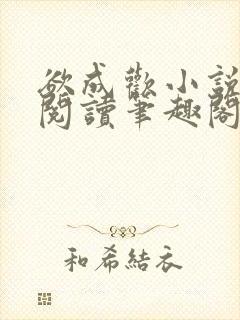 欲成歡小說
閱讀筆趣閣
和希結衣